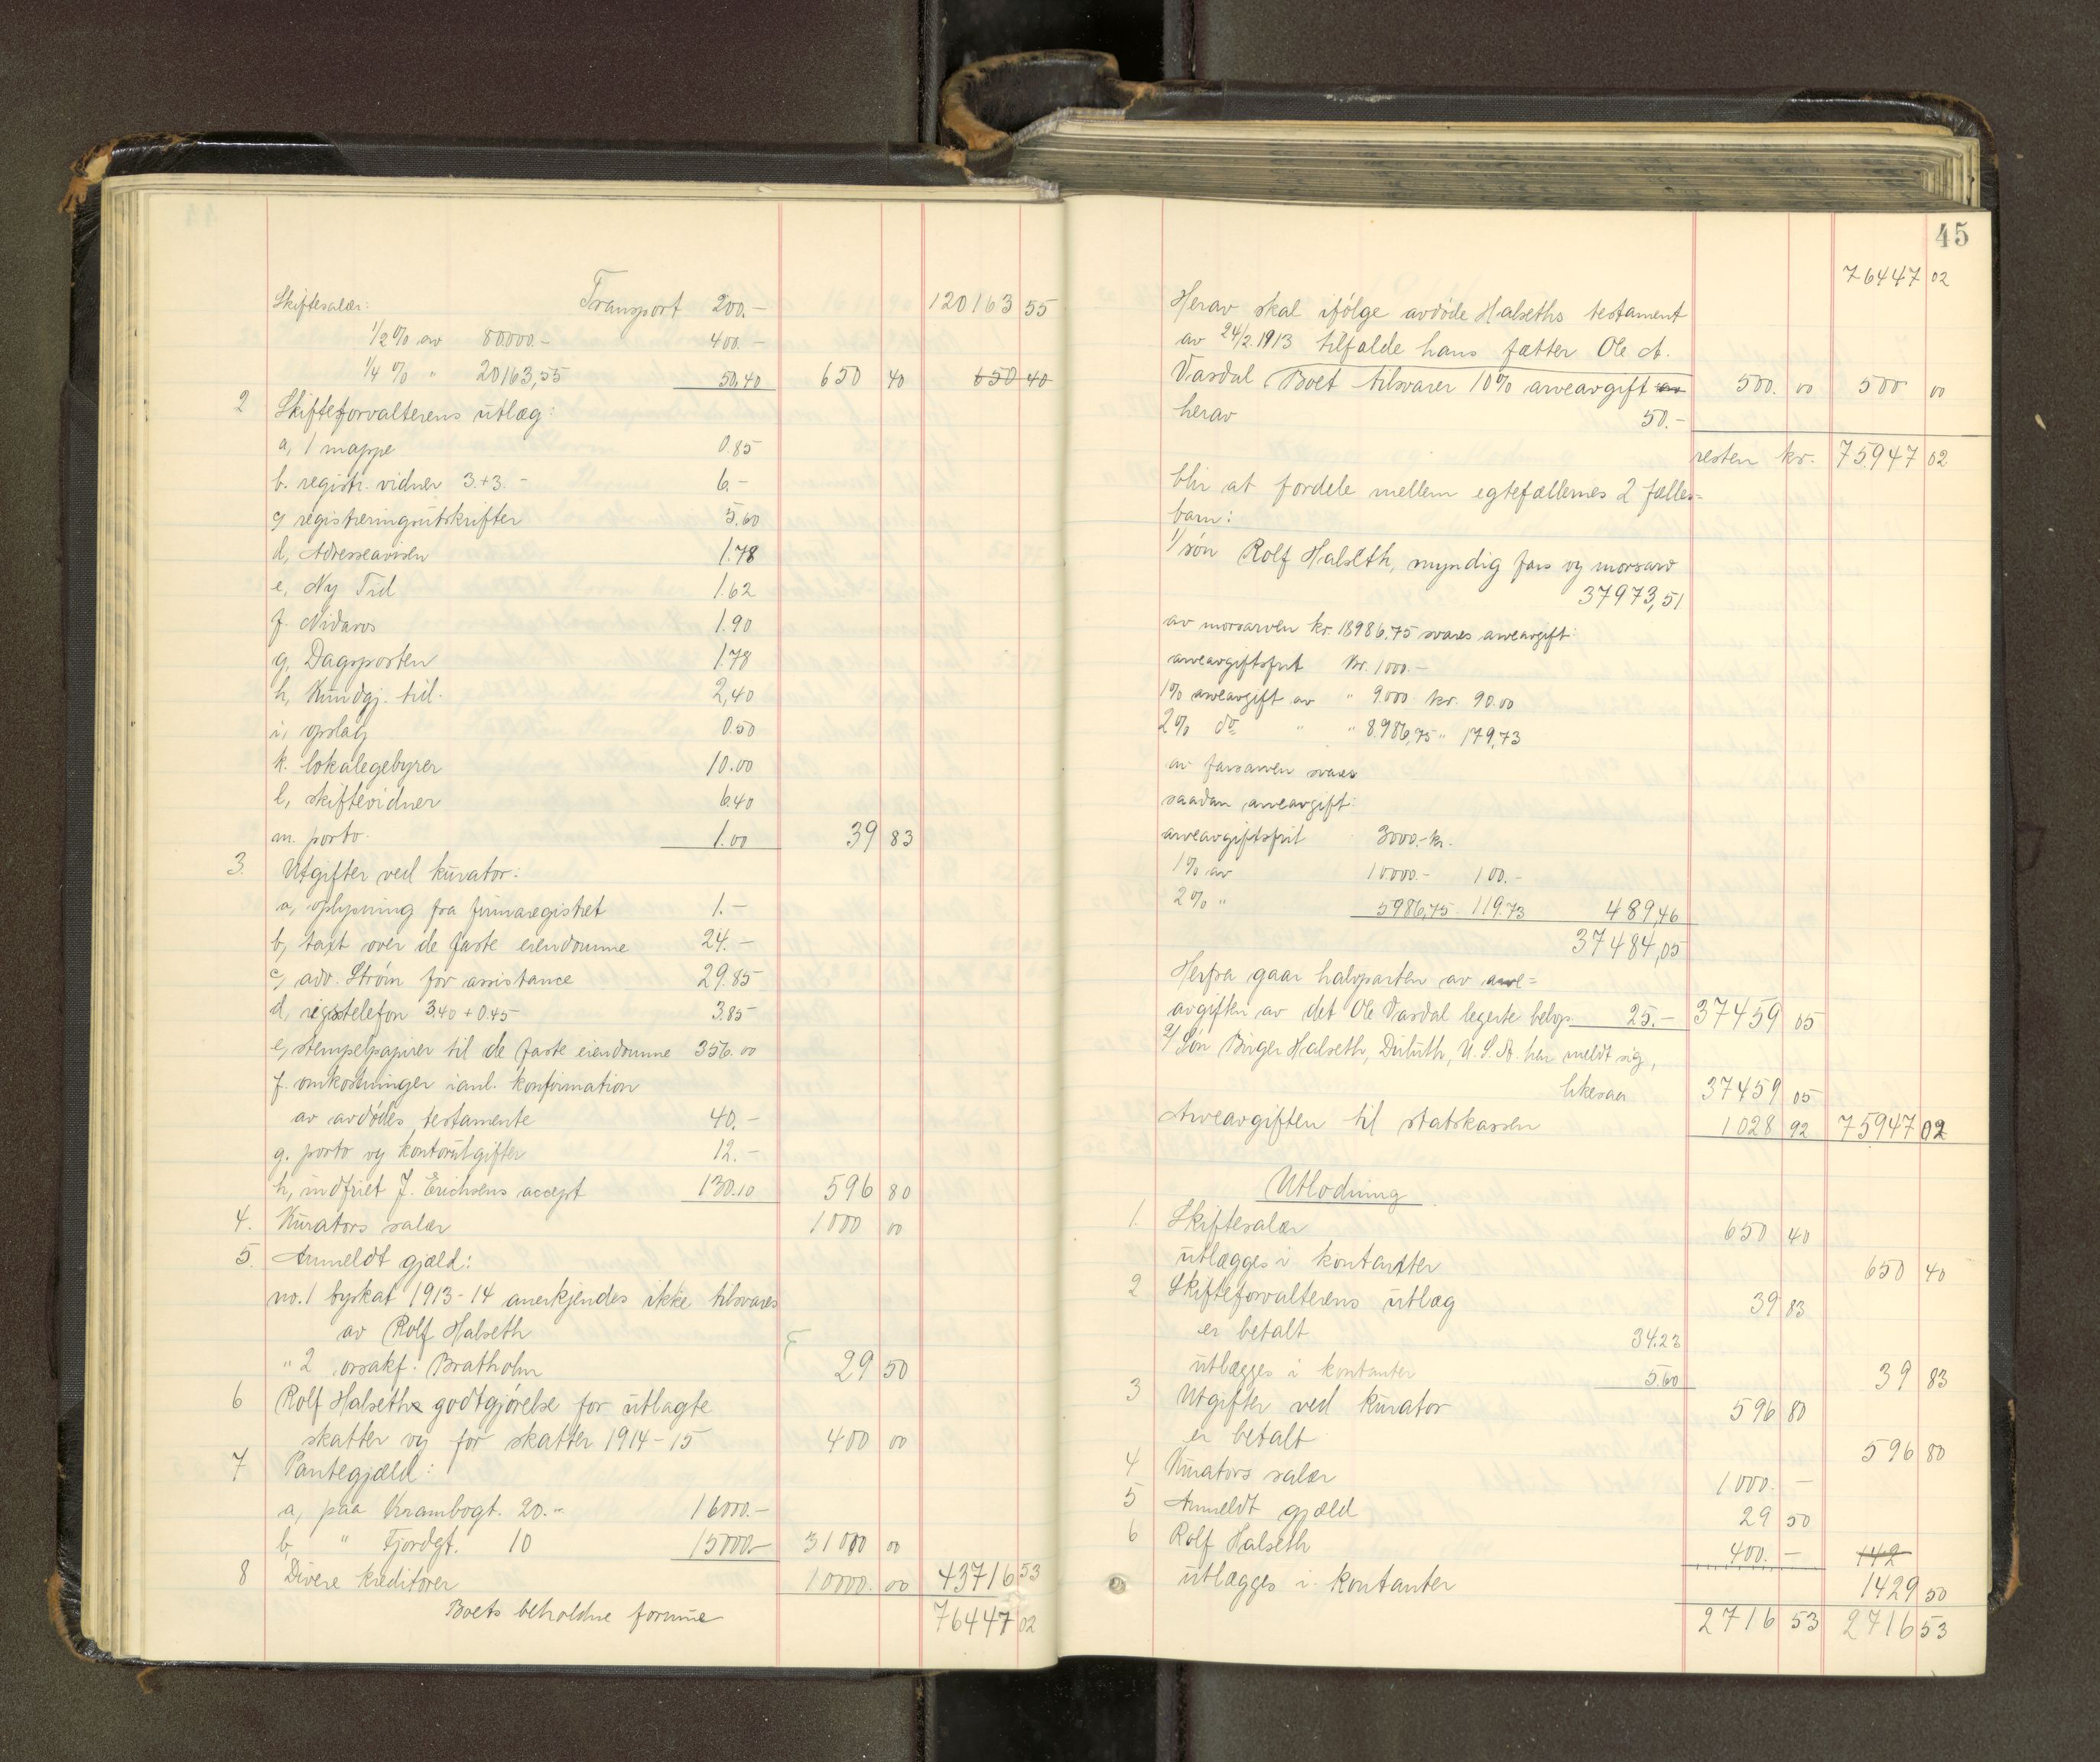 Skiftesalær: Transport 200.- 120163 55
1/2 % av 80000.- 400.-
1/4 % " 20163,55 50,40 650 40 650 40
2 Skifteforvalterens utlæg:
a, 1 mappe 0.85
b. registr. vidner 3.+3.- 6.-
c, registreringsutskrifter 5.60
d, Adresseavisen 1.78
e, Ny Tid 1.62
f. Nidaros 1.90
g, Dagsposten 1.78
h, Kundgj. tid. 2,40
i, opslag 0.50
k. lokalegebyrer 10.00
l, skiftevidner 6.40
m. porto. 1.00 39 83
3. Utgifter ved kurator:
a, oplysning fra firmaregistret 1.-
b, taxt over de faste eiendomme 24.-
c, adv. Strøm for assistance 29.85
d, rigstelefon 3,40 + 0.45 3.85
e, stempelpapirer til de faste eiendomme 356.00
f. omkostninger ianl. konfirmation
av avdødes testamente 40.-
g. porto og kontorutgifter 12.-
h, indfriet J. Erichsens accept 130.10 596 80
4. Kurators salær 1000 00
5. Anmeldt gjæld:
no. 1 byskat 1913-14 anerkjendes ikke tilsvares
av Rolf Halseth
" 2 orsakf. Bratholm 29 50
6 Rolf Halseths godtgjørelse for utlagte
skatter og for skatter 1914-15 400 00
7 Pantegjæld:
a, paa Krambogt. 20.- 16000.-
b, " Fjordgt. 10 15000- 31000 00
8 Divere kreditorer 10000. 00 43716 53
Boets beholdne formue 76447 02
45
76447 02
Herav skal ifølge avdøde Halseths testament
av 24/2 1913 tilfalde hans fætter Ole A.
Vasdal. Boet tilsvarer 10% arveavgift av 500. 00 500 00
herav 50.-
resten kr. 75947 02
blir at fordele mellem egtefællernes 2 fælles=
barn:
1/ søn Rolf Halseth, myndig fars og morsarv
37973,51
av morsarven kr. 18986,75 svares arveavgift:
arveavgiftsfrit kr. 1000.-
1% arveavgift av " 9.000 kr. 90.00
2% do " " 8.986,75 " 179,73
av farsarven svares
saadan arveavgift:
arveavgiftsfrit 3000.- kr.
1% av 10000.- 100.-
2% " 5986,75 119.73 489,46
37484,05
Herfra gaar halvparten av arve=
avgiften av det Ole Vasdal legerte beløp 25.- 37459 05
2/ Søn Birger Halseth, Duluth, U.S.A. har meldt sig,
likesaa 37459 05
Arveavgiften til statskassen 1028 92 75947 02
Utlodning
1. Skiftesalær 650 40
utlægges i kontanter 650 40
2 Skifteforvalterens utlæg 39 83
er betalt 34.23
utlægges i kontanter 5.60 39 83
3 Utgifter ved kurator 596 80
er betalt 596 80
4 Kurators salær 1000. -
5 Anmeldt gjæld 29 50
6 Rolf Halseth 400. - 142
utlægges i kontanter 1429 50
2716 53 2716 53